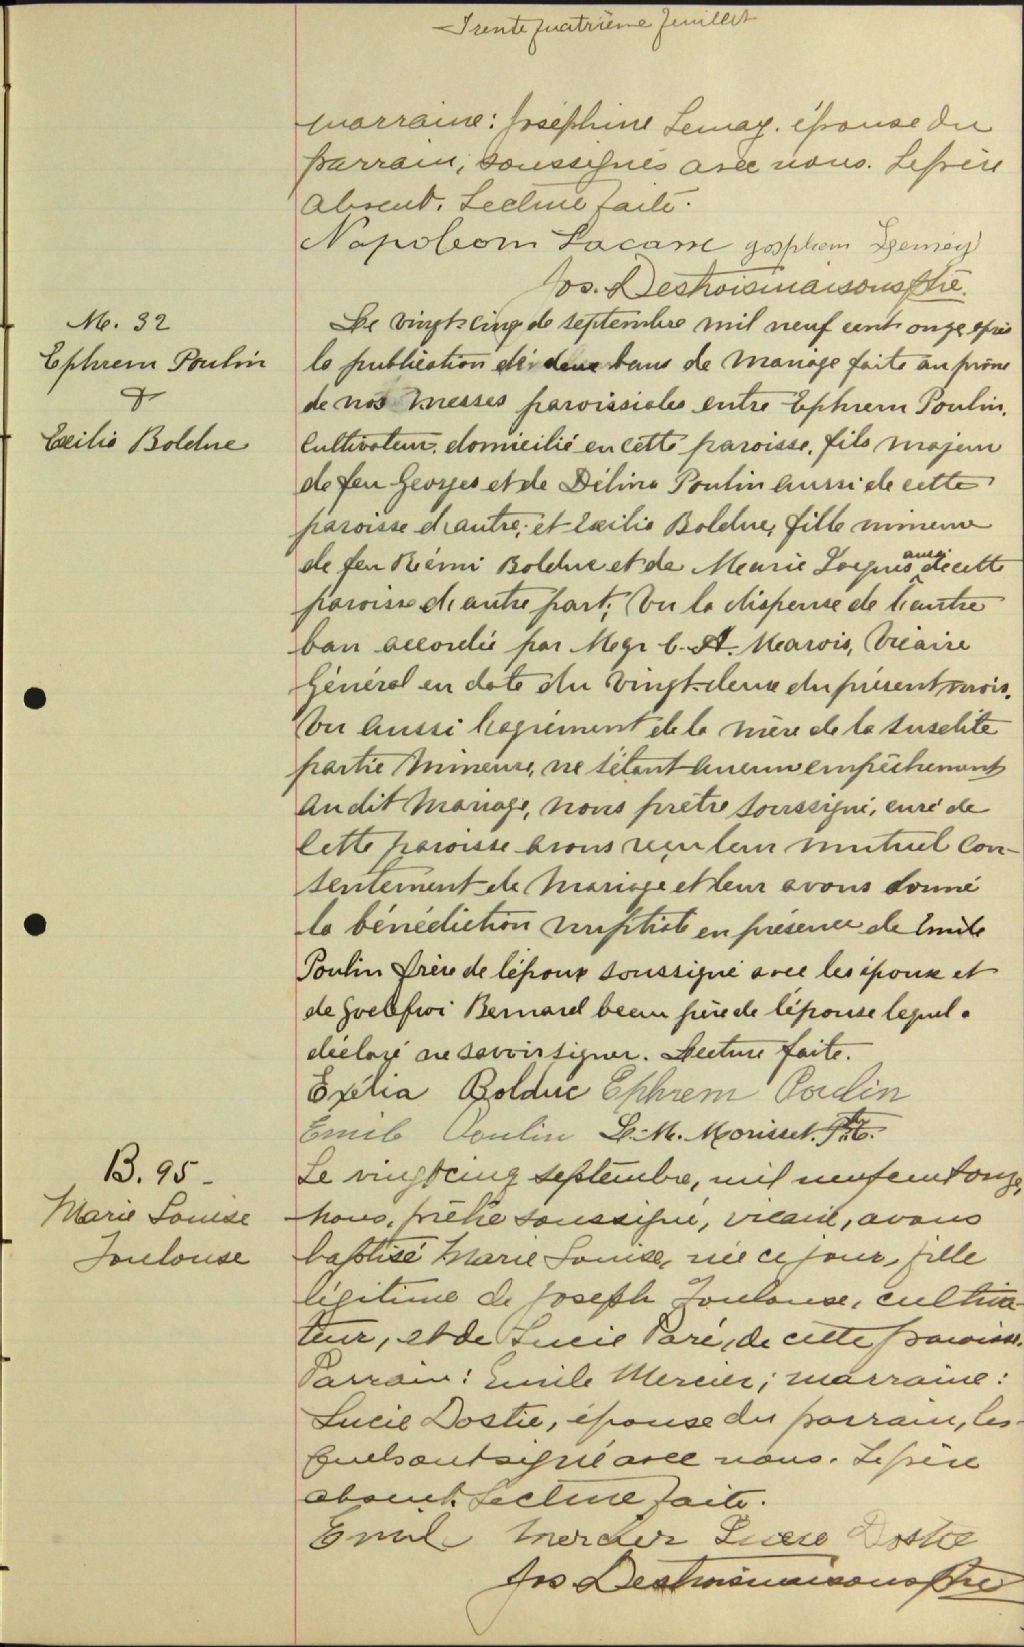 Trente quatrième feuillet
marraine: Joséphine Lemay. épouse du
parrain, soussignés avec nous. Le père
absent. Lecture faite.
Napoleom Lacasse Lemay
Jos. Destroismaisons ptre.
M. 32
Ephrem Poulin
&
Exilia Bolduc
Le vingt-cinq de septembre mil neuf cent onze, après
la publication de deux bans de mariage faite au prône
de nos messes paroissiales entre Ephrem Poulin,
cultivateur, domicilié en cette paroisse, fils majeur
de feu Georges et de Délina Poulin aussi de cette
paroisse d'autre; et Exilia Bolduc, fille mineure
de feu Rémi Bolduc et de Marie Jacques aussi de cette
paroisse d'autre part; Vu la dispense de l'autre
ban accordée par Mgr C. A. Marois, Vicaire
Général en date du vingt-deux du présent mois.
Vu aussi l'agrément de la mère de la susdite
partie mineure, ne s'étant aucun empêchement
au dit mariage, nous prêtre soussigné, curé de
cette paroisse avons reçu leur mutuel con-
sentement de mariage et leur avons donné
la bénédiction nuptiale en présence de Emile
Poulin frère de l'époux soussigné avec les époux et
de Godefroi Bernard beau père de l'épouse lequel a
déclaré ne savoir signer. Lecture faite.
Exélia Bolduc Ephrem Poulin
Emile Poulin L. M. Morisset. Ptre.
B. 95 -
Marie Louise
Toulouse
Le vingt cinq septembre, mil neuf cent onze,
nous, prêtre soussigné, vicaire, avons
baptisé Marie Louise, née ce jour, fille
légitime de Joseph Toulouse, cultiva-
teur, et de Lucie Paré, de cette paroisse.
Parrain: Emile Mercier; marraine:
Lucie Dostie, épouse du parrain, les-
quels ont signé avec nous. Le père
absent. Lecture faite.
Emile Mercier Lucie Dostie
Jos Destroismaisons ptre